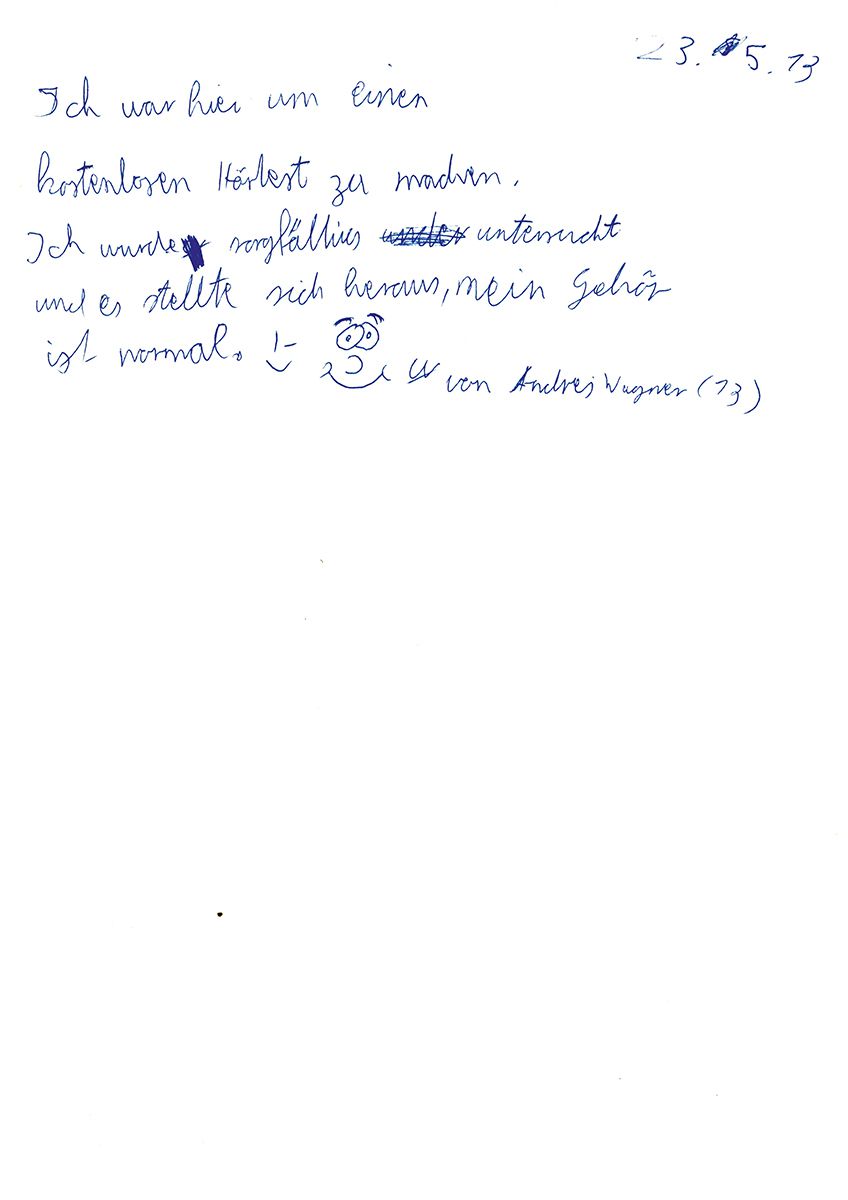 23. 5. 13
Ich war hier um einen
kostenlosen Hörtest zu machen.
Ich wurde sorgfälltig untersucht
und es stellte sich heraus, mein Gehör
ist normal.
von Andrej Wagner (13)